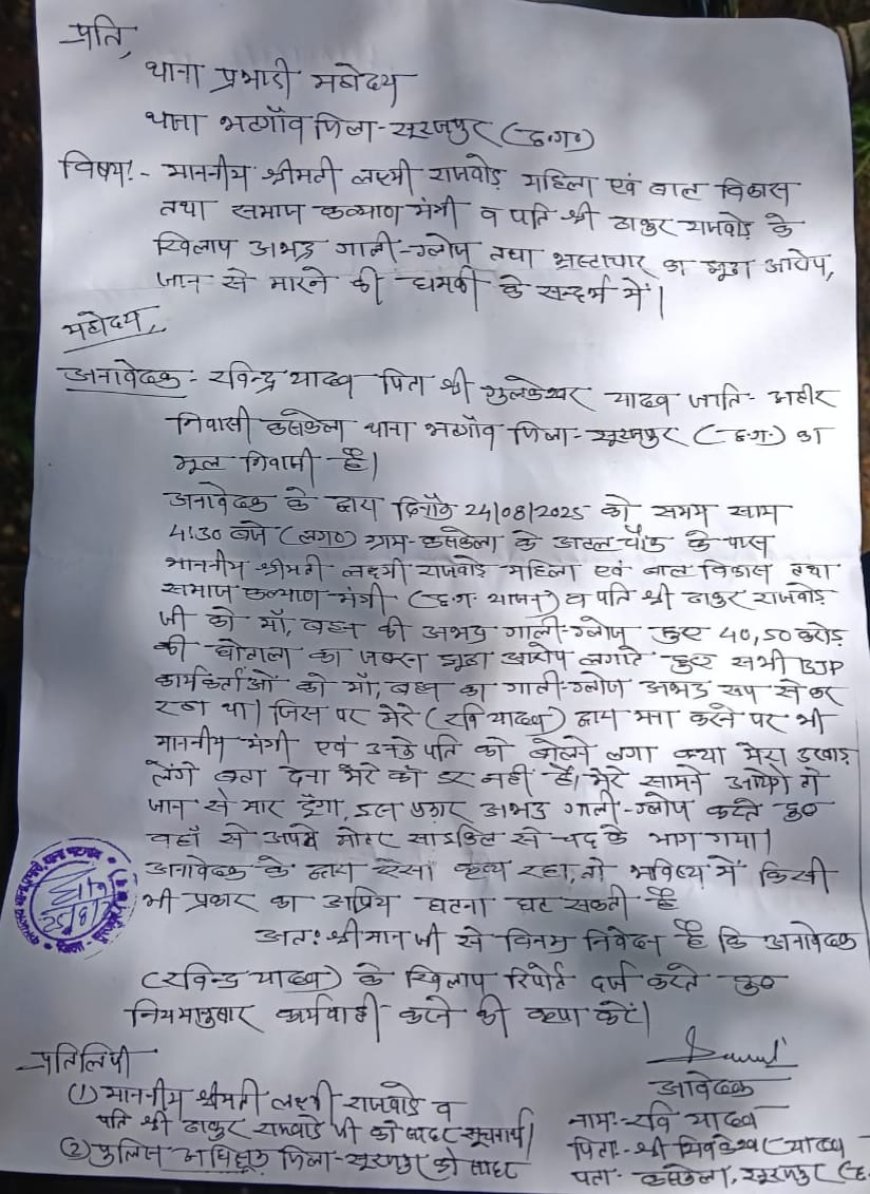 प्रति,
थाना प्रभारी महोदय
थाना भटगाँव जिला-सूरजपुर (छ०ग०)
विषय:- माननीय श्रीमती लक्ष्मी राजवाड़े महिला एवं बाल विकास
तथा समाज कल्याण मंत्री व पति श्री ठाकुर राजवाड़े के
खिलाप अभद्र गाली-ग्लोज तथा भ्रस्टाचार का झूठा आरोप,
जान से मारने की धमकी के सन्दर्भ में।
महोदय,,
अनावेदक - रविन्द्र यादव पिता श्री यादव जाति- अहीर
निवासी कसकेला थाना भटगाँव जिला-सूरजपुर (छ.ग.) का
मूल निवासी है।
अनावेदक के द्वारा दिनाँक 24/08/2025 को समय साम
4:30 बजे (लग०) ग्राम-कसकेला के अटल चौक के पास
माननीय श्रीमती लक्ष्मी राजवाड़े महिला एवं बाल विकास तथा
समाज कल्याण मंत्री (छ.ग. शासन) व पति श्री ठाकुर राजवाड़े
जी को माँ, बहन की अभद्र गाली-ग्लोज हुए 40,50 करोड़
की घोटाला का झूठा आरोप लगाते हुए सभी BJP
कार्यकर्ताओं को माँ, बहन का गाली-ग्लोज अभद्र रूप से कर
रहा था। जिस पर मेरे (रवि यादव) द्वारा मना करने पर भी
माननीय मंत्री एवं उनके पति को बोलने लगा क्या मेरा उखाड़
लेंगे बता देना मेरे को डर नहीं है। मेरे सामने आयेंगे तो
जान से मार दूँगा, इस प्रकार अभद्र गाली-ग्लोज करते हु०
वहाँ से अपने मोटर साइकिल से चढ़ के भाग गया।
अनावेदक के द्वारा ऐसा कृत्य रहा, तो भविष्य में किसी
भी प्रकार का अप्रिय घटना घट सकती है
अतः श्रीमान जी से विनम्र निवेदन है कि अनावेदक
(रविन्द्र यादव) के खिलाप रिपोर्ट दर्ज करते हु०
नियमानुसार कार्यवाही करने की कृपा करें।
प्रतिलिपी
(1) माननीय श्रीमती लक्ष्मी राजवाड़े व
पति श्री ठाकुर राजवाड़े जी को सादर सूचनार्थ।
(2) पुलिस जिला-सूरजपुर को सादर
आवेदक
नाम:- रवि यादव
पिता- श्री यादव
पता- कसकेला, सूरजपुर (छ.